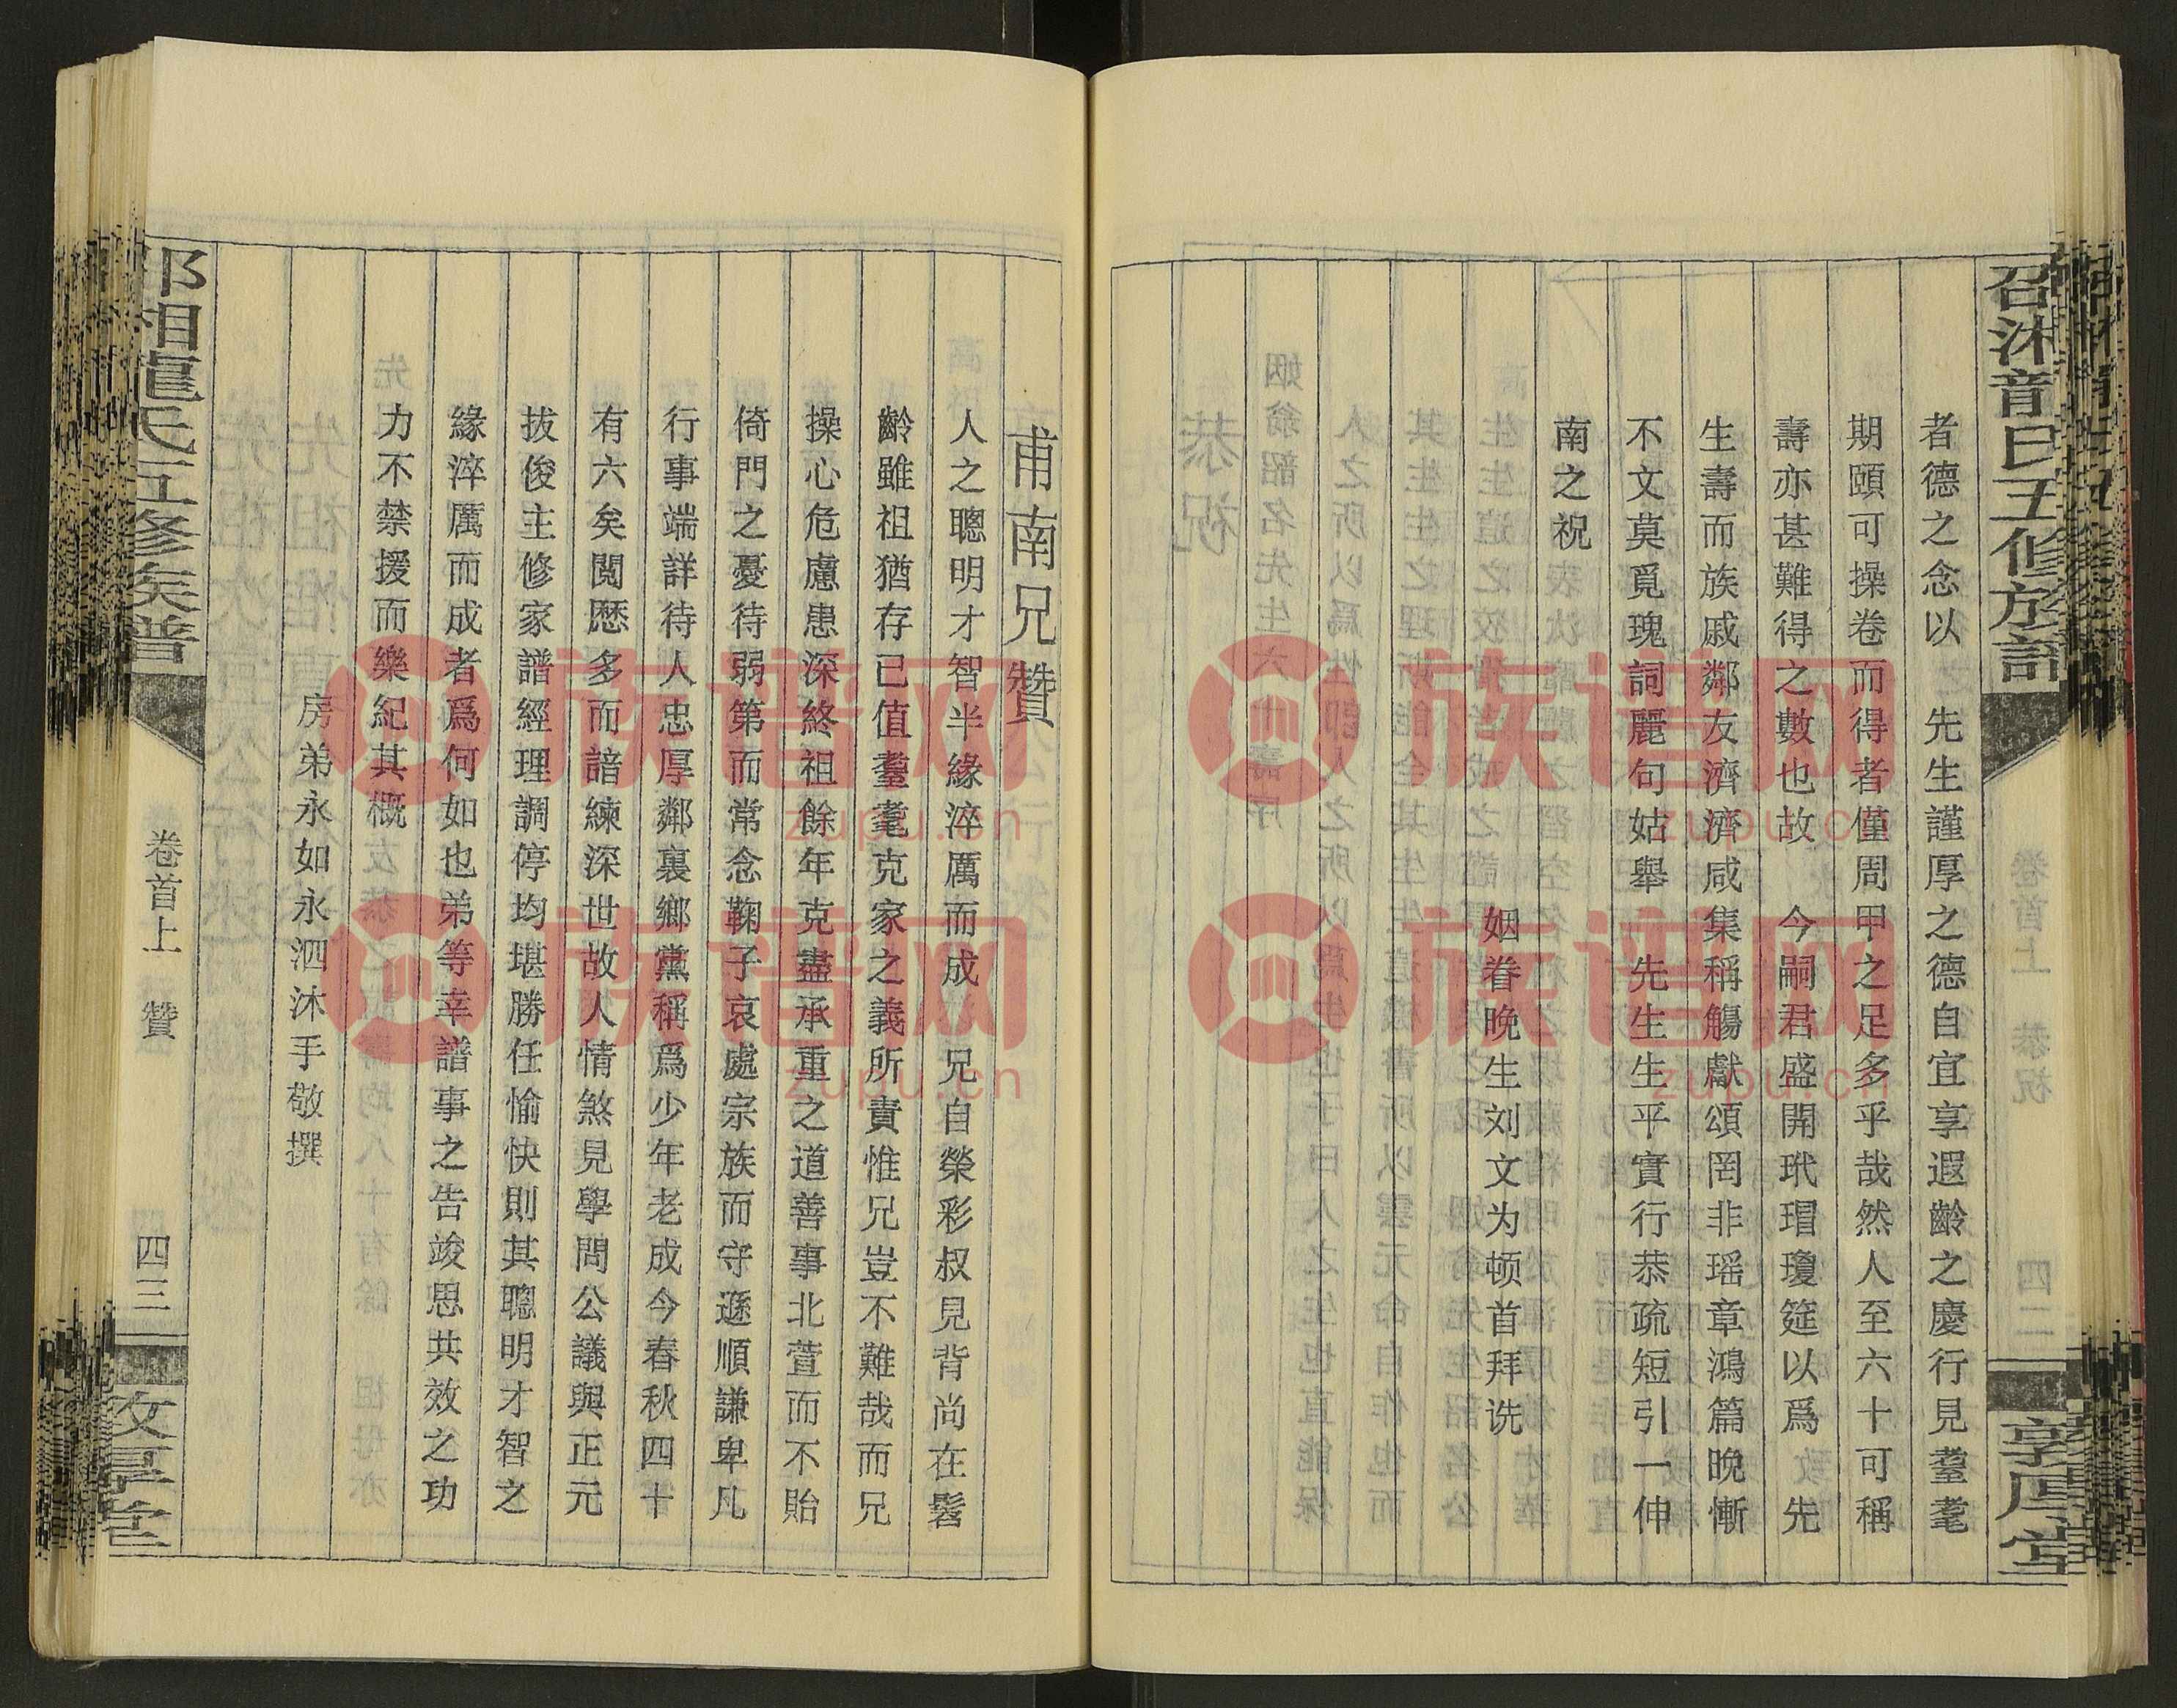 者德之念以　先生謹厚之德自宜享遐齡之慶行見耋耄
期頤可操卷而得者僅周甲之足多乎哉然人至六十可稱
壽亦甚難得之數也故　今嗣君盛開玳瑁瓊筵以爲　先
生壽而族戚鄰友濟濟咸集稱觴獻頌罔非瑶章鴻篇晚慚
不文莫覓瑰詞麗句姑舉　先生生平實行恭疏短引一伸
南之祝
姻眷晚生刘文为顿首拜诜
甫南兄贊
人之聰明才智半緣淬厲而成　兄自榮彩叔見背尚在髫
齡雖祖猶存已值耋耄克家之義所責惟兄豈不難哉而兄
操心危慮患深終祖餘年克盡承重之道善事北萱而不貽
倚門之憂待弱第而常念鞠子哀處宗族而守遜順謙卑凡
行事端詳待人忠厚鄰裏鄉黨稱爲少年老成今春秋四十
有六矣閱歷多而諳練深世故人情煞見學問公議與正元
拔俊主修家譜經理調停均堪勝任愉快則其聰明才智之
緣淬厲而成者爲何如也弟等幸譜事之告竣思共效之功
力不禁援而樂紀其概
房弟永如永泗沐手敬撰
卷首上　贊
四三
族谱网
zupu.cn
族谱网
zupu.cn
族谱网
zupu.cn
族谱网
zupu.cn